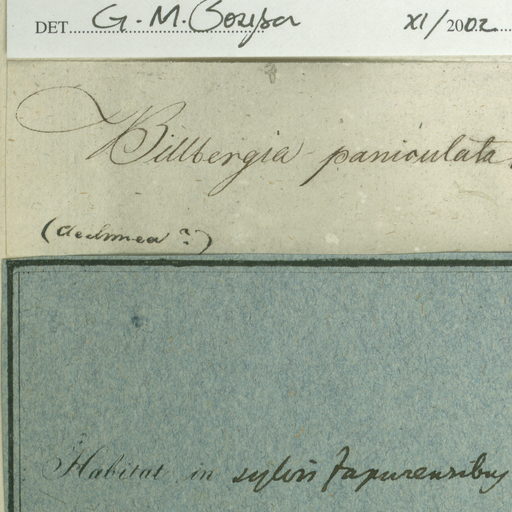 DET. G. M. Sousa XI/2002
Billbergia paniculata
(Aechmea ?)
Habitat in sylvis Japurensibus